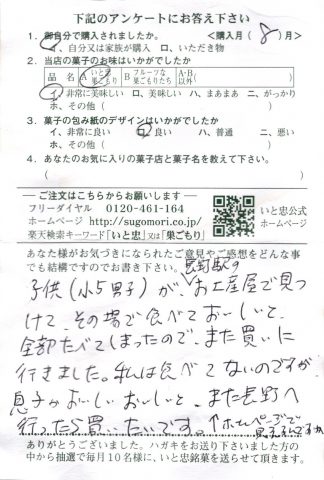 下記のアンケートにお答え下さい
1. 御自分で購入されましたか。 <購入月( 8 )月>
イ、自分又は家族が購入 ロ、いただき物
2. 当店の菓子のお味はいかがでしたか
品名 A いと忠巣ごもり B フルーツな巣ごもりたち A・B以外( )
イ、非常に美味しい ロ、美味しい ハ、まあまあ ニ、がっかり
ホ、その他( )
3. 菓子の包み紙のデザインはいかがでしたか
イ、非常に良い ロ、良い ハ、普通 ニ、悪い
ホ、その他( )
4. あなたのお気に入りの菓子店と菓子名を教えて下さい。
( )
ご注文はこちらからお願いします
フリーダイヤル 0120-461-164
ホームページ http://sugomori.co.jp/
楽天検索キーワード「いと忠」又は「巣ごもり」
いと忠公式
ホームページ
あなた様がお気づきになられたご意見やご感想をどんな事
でも結構ですのでお書き下さい。
長野駅の
子供(小5男子)が、お土産屋で見つ
けて、その場で食べておいしいと、
全部たべてしまったので、また買いに
行きました。私は食べてないのですが
息子がおいしいおいしいと、また長野へ
行ったら買いたいです。
↑ホームページで
買えるんですか
ありがとうございました。ハガキをお送り下さいました方
の中から抽選で毎月10名様に、いと忠銘菓を送らせて頂きます。